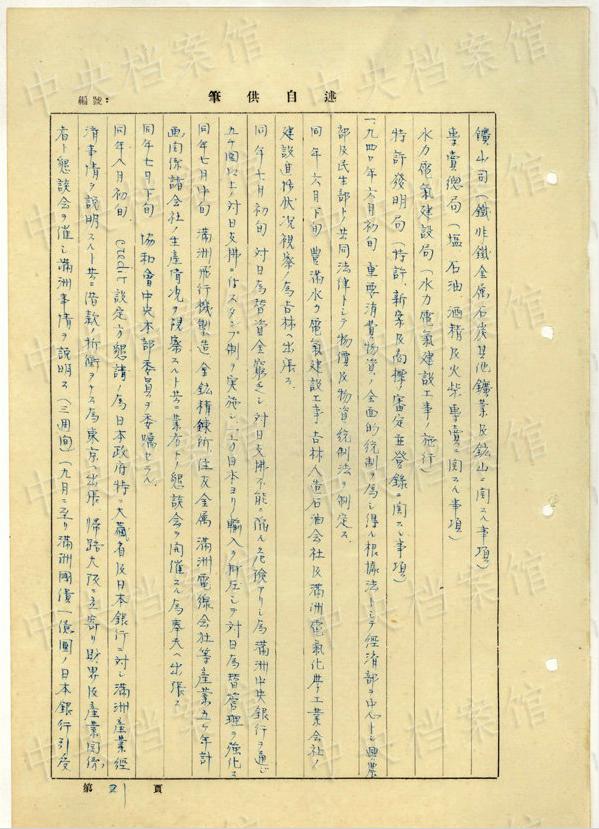 編號：
筆供自述
鑛山司（鐵非鐵金属石炭其他鑛業及鉱山ニ関スル事項）
專賣總局（塩 石油 酒精及火柴專賣ニ関スル事項）
水力電氣建設局（水力電氣建設工事ノ施行）
特許發明局（特許、新案及商標ノ審定並登録ニ関スル事項）
一九四〇年六月初旬 重要消費物資ノ全面的統制ヲ為シ得ル根據法トシテ経済部ヲ中心トシ興農
部及民生部トノ共同法律トシテ物價及物資統制法ヲ制定ス
同年 六月下旬 豊満水力電氣建設工事、吉林人造石油会社及満洲電氣化學工業会社ノ
建設進捗状况視察ノ為吉林ヘ出張ス
同年 七月初旬 対日為替資金窮乏シ対日支拂不能ニ陥ル危険アリシ為満洲中央銀行ヲ通ジ
対日支拂 スタンプ制ヲ実施シ 日本ヨリノ輸入ヲ抑圧シテ対日為替管理ヲ強化ス
同年七月中旬 満洲飛行機製造 金鉱精錬所 住友金属 満洲電線会社等産業五ヶ年計
画関係諸会社ノ生産情况ヲ視察スルト共ニ業者トノ懇談会ヲ開催スル為奉天ヘ出張ス
同年七月下旬 協和會中央本部委員ヲ委嘱セラル
同年八月初旬 credit設定方懇請ノ為日本政府特ニ大藏省及日本銀行ニ対シ満洲産業経
済事情ヲ説明スルト共ニ借款ノ折衝ヲナス為東京ヘ出張 帰路大阪ニ立寄リ財界及産業関係
者ト懇談会ヲ催シ満洲事情ヲ説明ス（三週間）（九月ニ至リ満洲國債一億圓ノ日本銀行引受
第 21 頁
中央档案馆